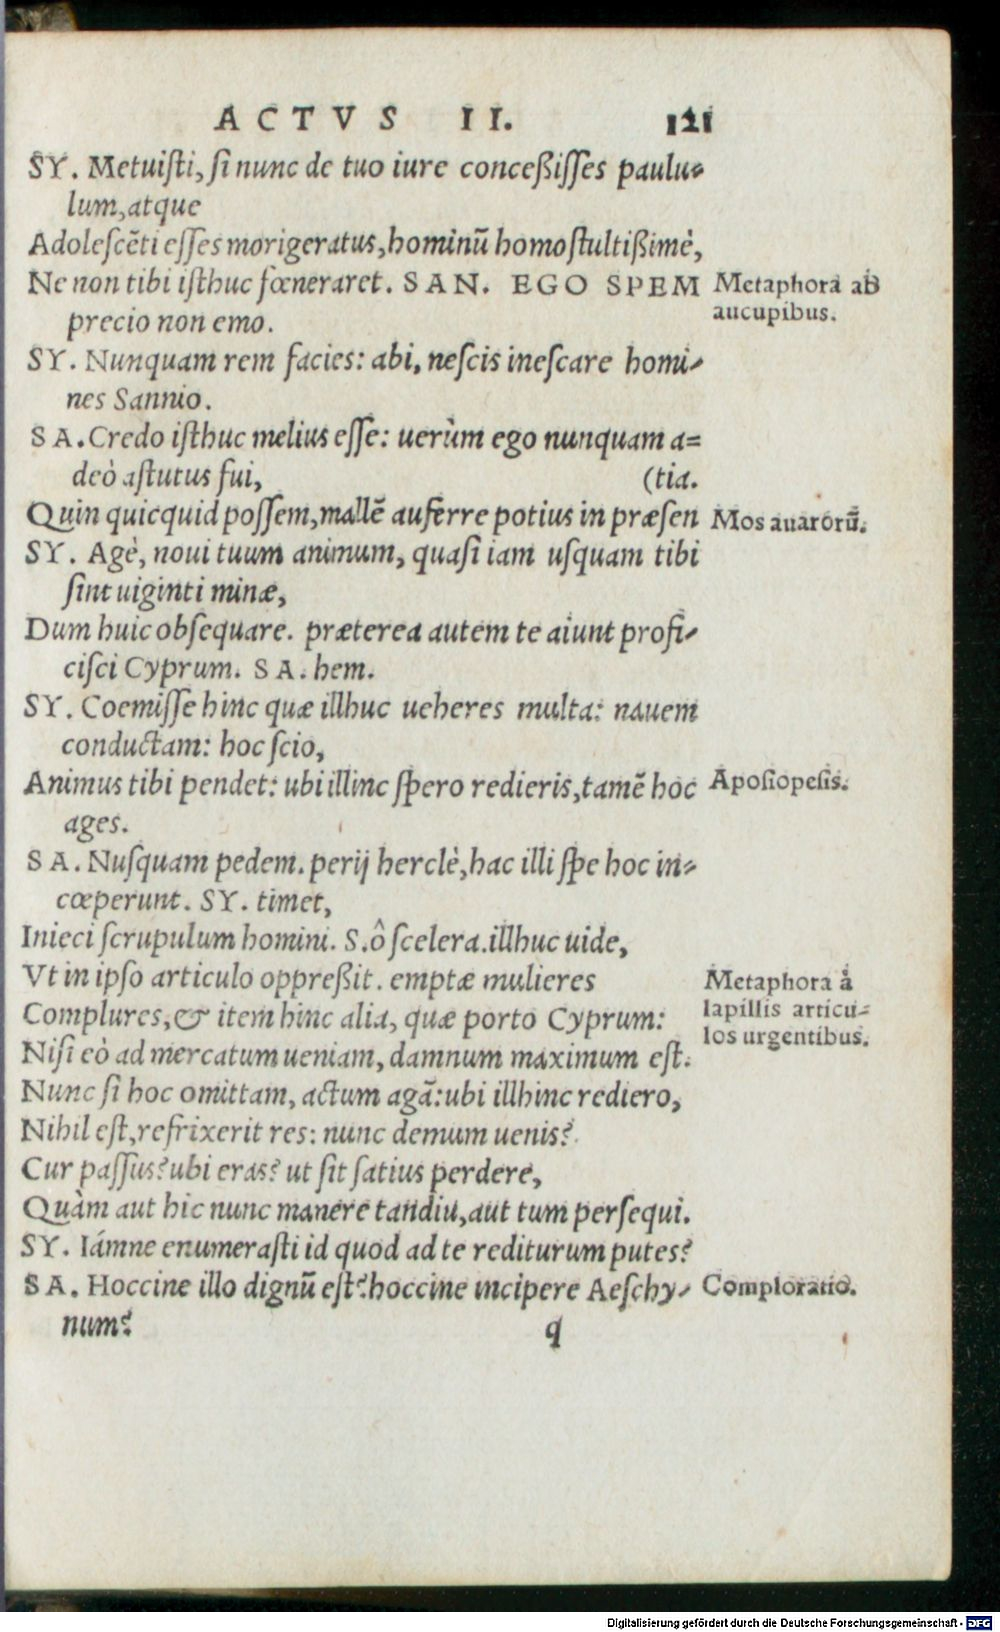 ACTVS II. 121
SY. Metuiſti, ſi nunc de tuo iure conceßiſſes paulu-
lum, atque
Adoleſcẽti eſſes morigeratus, hominũ homo ſtultißimè,
Ne non tibi iſthuc fœneraret. SAN. EGO SPEM
precio non emo.
Metaphora ab
aucupibus.
SY. Nunquam rem facies: abi, neſcis ineſcare homi-
nes Sannio.
SA. Credo iſthuc melius eſſe: uerùm ego nunquam a=
deò aſtutus fui, (tia.
Quin quicquid poſſem, mallẽ auferre potius in præſen
Mos auarorũ.
SY. Agè, noui tuum animum, quaſi iam uſquam tibi
ſint uiginti minæ,
Dum huic obſequare. præterea autem te aiunt profi-
ciſci Cyprum. SA. hem.
SY. Coemiſſe hinc quæ illhuc ueheres multa: nauem
conductam: hoc ſcio,
Animus tibi pendet: ubi illinc ſpero redieris, tamẽ hoc
ages.
Apoſiopeſis.
SA. Nuſquam pedem. perij herclè, hac illi ſpe hoc in-
cœperunt. SY. timet,
Inieci ſcrupulum homini. S. ô ſcelera. illhuc uide,
Vt in ipſo articulo oppreßit. emptæ mulieres
Complures, & item hinc alia, quæ porto Cyprum:
Niſi eò ad mercatum ueniam, damnum maximum eſt.
Metaphora à
lapillis articu-
los urgentibus.
Nunc ſi hoc omittam, actum agã: ubi illhinc rediero,
Nihil eſt, refrixerit res: nunc demum uenis?
Cur paſſus? ubi eras? ut ſit ſatius perdere,
Quàm aut hic nunc manere tandiu, aut tum perſequi.
SY. Iámne enumeraſti id quod ad te rediturum putes?
SA. Hoccine illo dignũ eſt? hoccine incipere Aeſchy-
num?
Comploratio.
q
Digitalisierung gefördert durch die Deutsche Forschungsgemeinschaft - DFG